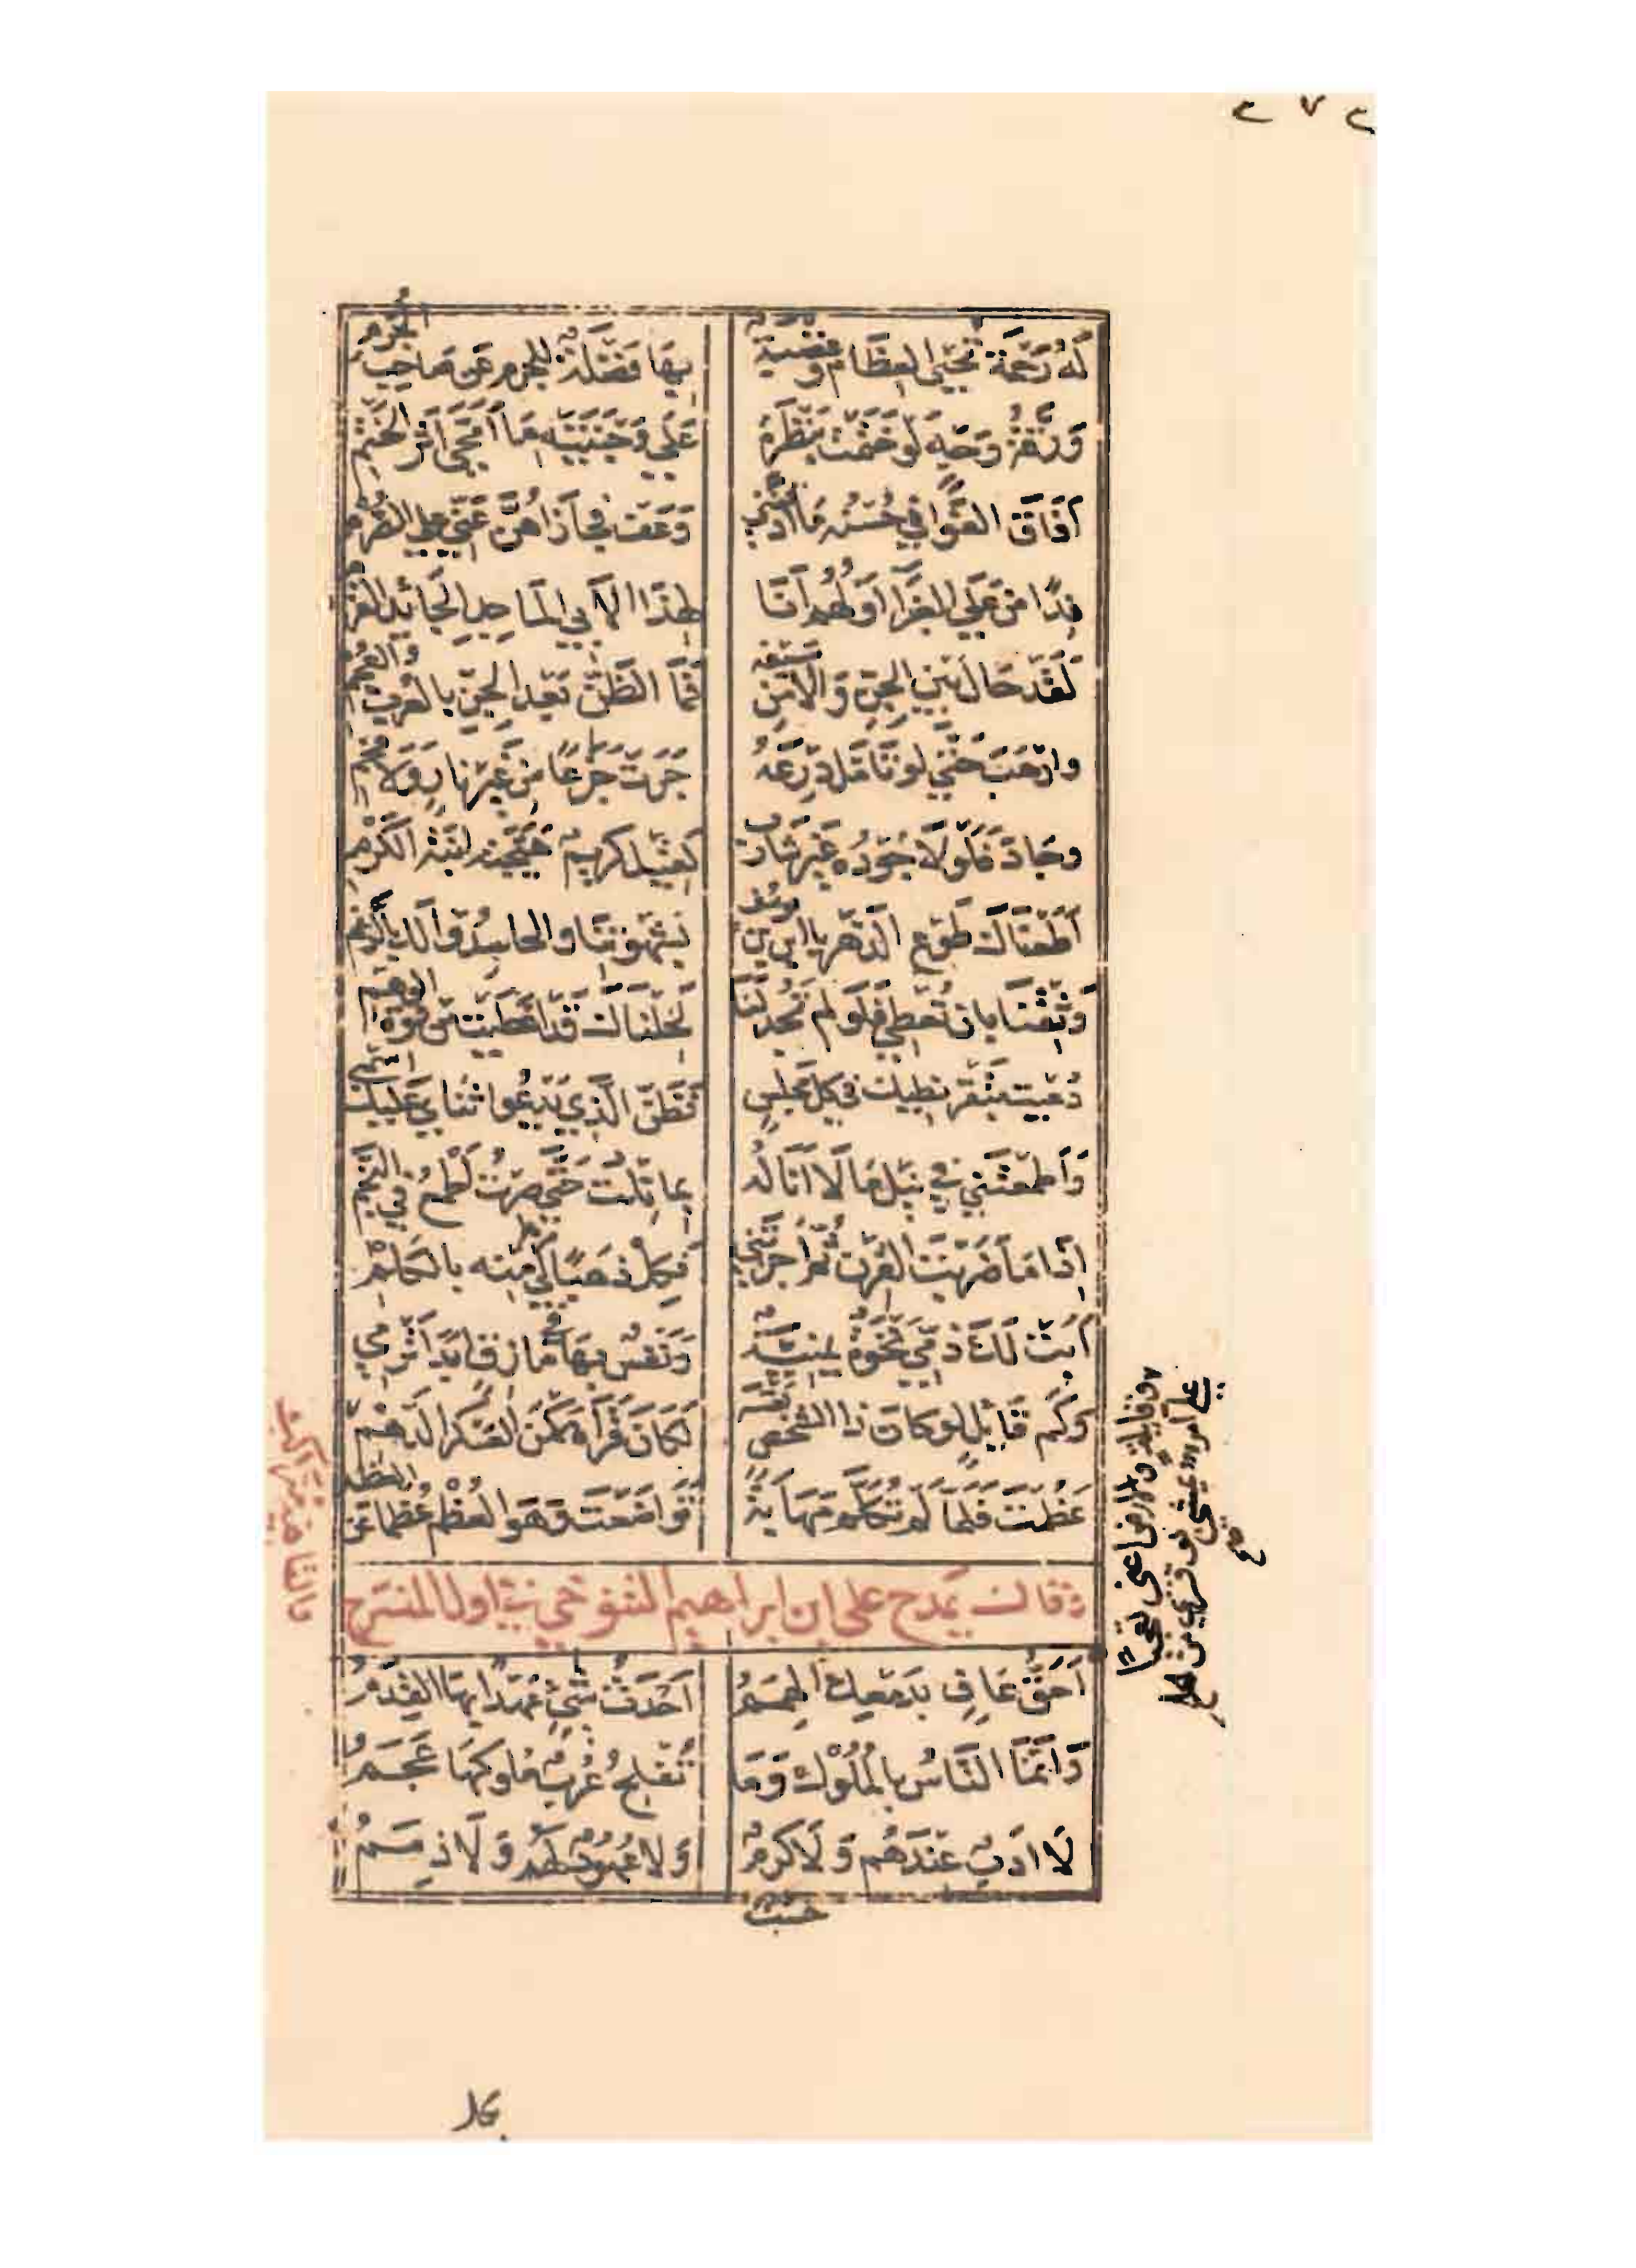 ٢٧٢
لَهُ رَحْمَةٌ تُحْيِي العِظَامَ وَغَضْبَةٌ بِهَا فَضْلَةٌ لِلجُرْمِ عَنْ صَاحِبِ الجُرْمِ
وَرِقَّةُ وَجْهٍ لَوْ خَتَمْتَ بِنَظْرَةٍ عَلَى وَجْنَتَيْهِ مَا امَّحَى أَثَرُ الخَتْمِ
أَذَاقَ الغَوَانِي حُسْنُهُ مَا أَذَقْنَنِي وَعَفَّ فَجَازَاهُنَّ عَنِّي عَلَى الصُّرْمِ
فِدًا مَنْ عَلَى الغَبْرَا أَوَّلُهُمْ أَنَا لِهَذَا الأَبِيِّ المَاجِدِ الجَائِدِ القَرْمِ
لَقَدْ حَالَ بَيْنَ الجِنِّ وَالأَمْنِ سَيْفُهُ فَمَا الظَّنُّ بَعْدَ الجِنِّ بِالعُرْبِ وَالعُجْمِ
وَارْهَبَ حَتَّى لَوْ تَأَمَّلَ دِرْعَهُ جَرَتْ جَزَعًا مِنْ غَيْرِ نَارٍ وَلَا فَحْمِ
وجَادَ فَلَوْلَا جُودُهُ غَيْرَ شَارِبٍ لَقِيلَ كَرِيمٌ هَيَّجَتْهُ ابْنَةُ الكَرْمِ
أَطَعْنَاكَ طَوْعَ الدَّهْرِ يَا ابْنَ ابْنِ يُوسُفٍ بِشَهْوَتِنَا وَالحَاسِدُوا لَكَ بِالرَّغْمِ
وَثِقْنَا بِأَنْ تُعْطِي فَلَوْ لَمْ تَجُدْ لَنَا لَخِلْنَاكَ قَدْ أَعْطَيْتَ مِنْ قُوَّةِ الوَهْمِ
دُعِيتُ بِتَقْرِيظِيكَ فِي كُلِّ مَجْلِسٍ فَظَنَّ الَّذِي يَدْعُوا ثَنَائِي عَلَيْكَ اسْمِي
وَأَطْمَعْتَنِي فِي نَيْلِ مَا لَا أَنَالُهُ بِمَا نِلْتُ حَتَّى صِرْتُ أَطْمَعُ فِي النَّجْمِ
إِذَا مَا ضَرَبْتَ القِرْنَ ثُمَّ أَجَزْتَنِي فَكِلْ ذَهَبًا لِي مَرَّةً مِنْهُ بِالكَلْمِ
أَبَتْ لَكَ ذَمِّي نَخْوَةٌ يَمَنِيَّةٌ وَنَفْسٌ بِهَا فِي مَازِقٍ أَبَدًا تَرْمِي
وَكَمْ قَائِلٍ لَوْ كَانَ ذَا الشَّخْصُ نَفْسَهُ لَكَانَ قَرَاهُ مَكْمَنَ العَسْكَرِ الدَّهْمِ
وقايلة والارض اعني تعجبا
علي امرء يمشي بوقري من الحلم
صح
عَظُمْتَ فَلَمَّا لَمْ تُكَلَّمْ مَهَابَةً تَوَاضَعْتَ وَهُوَ العُظْمُ عُظْمًا عَنِ العُظْمِ
وقال يَمدح علي ابن ابراهيم التنوخي في اول المنسرح
أَحَقُّ عَافٍ بِدَمْعِكَ الهِمَمُ أَحْدَثُ شَيْءٍ عَهْدًا بِهَا القِدَمُ
وَإِنَّمَا النَّاسُ بِالمُلُوكِ وَمَا تُفْلِحُ عُرْبٌ مُلُوكُهَا عَجَمُ
لَا أَدَبٌ عِنْدَهُمْ وَلَا كَرَمٌ وَلَا عُهُودٌ لَهُمْ وَلَا ذِمَمُ